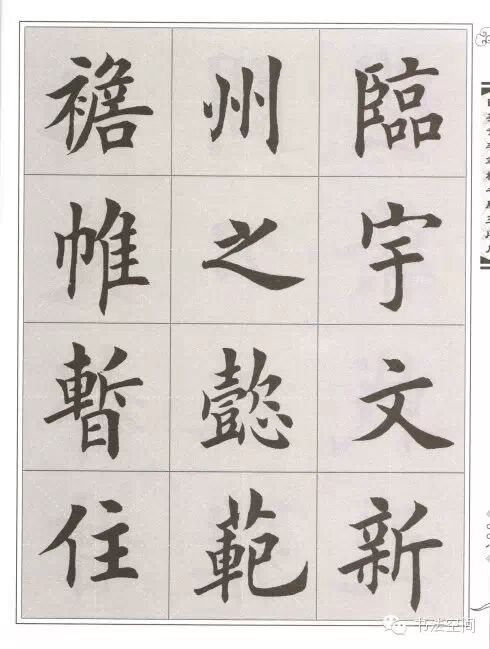 臨宇文新
州之懿範
襜帷暫住
书法空间